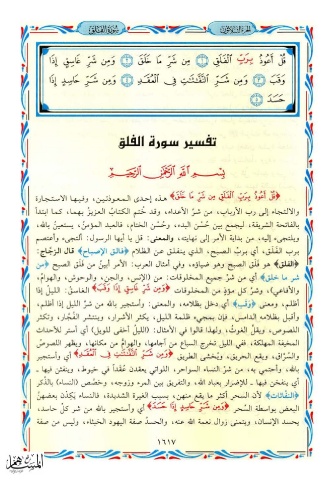 سُورَةُ الفَلَقِ
الجزء الثلاثون
قُلْ أَعُوذُ بِرَبِّ الْفَلَقِ ۝ مِن شَرِّ مَا خَلَقَ ۝ وَمِن شَرِّ غَاسِقٍ إِذَا
وَقَبَ ۝ وَمِن شَرِّ النَّفَّاثَاتِ فِي الْعُقَدِ ۝ وَمِن شَرِّ حَاسِدٍ إِذَا
حَسَدَ ۝
تفسير سورة الفلق
بِسْمِ اللَّهِ الرَّحْمَٰنِ الرَّحِيمِ
﴿قُلْ أَعُوذُ بِرَبِّ الْفَلَقِ مِن شَرِّ مَا خَلَقَ﴾ هذه إحدى المعوذتين، وفيها الاستجارة
والالتجاء إلى رب الأرباب، من شرِّ الأعداء، وقد خُتم الكتابُ العزيزُ بهما، كما ابتدأ
بالفاتحة الشريفة، ليجمع بين حُسْن البدء، وحُسْن الختام، فالعبد المؤمنُ، يستعينُ بالله،
ويلتجىء إليه، من بداية الأمر إلى نهايته، والمعنى: قل يا أيها الرسول: ألتجىء وأعتصم
بربِّ الفَلَق، أي بربِّ الصبح، الذي ينفلق عن الظلام ﴿فالق الإصباح﴾ قال الزجاج:
﴿الفلق﴾ هو فَلَقُ الصبح وهو ضياؤه، وفي أمثال العرب: الأمر أبينُ من فلق الصبح ﴿من
شر ما خلق﴾ أي من شرِّ جميع المخلوقات: من (الإنس، والجن، والوحوش، والهوامِّ
والأفاعي)، وشرِّ كلِّ مؤذٍ من المخلوقات ﴿وَمِن شَرِّ غَاسِقٍ إِذَا وَقَبَ﴾ الغاسقُ: الليلُ إذا
أظلم، ومعنى ﴿وَقَب﴾ أي دخل بظلامه، والمعنى: وأستجير بالله من شرِّ الليل إذا أظلم،
وأقبل بظلامه الدامس، فإن بمجيء ظلمة الليل، يكثر الأشرار، وينتشر الفُجَّار، وتكثر
اللصوص، ويقلُّ الغوثُ، ولهذا قالوا في الأمثال: (الليلُ أخفى للويل) أي أستر للأحداث
المخيفة المهلكة، ففي الليل تخرج السباع من آجامها، والهوامُّ من مكانها، ويظهر اللصوصُ
والسُّرَّاق، ويقع الحريق، ويُخشى الطريق ﴿وَمِن شَرِّ النَّفَّاثَاتِ فِي الْعُقَدِ﴾ أي وأستجير
بالله، وأحتمي به، من شرِّ النساء السواحر، اللواتي يعقدن عُقَداً في خيوط، وينفثن فيها ـ
أي ينفخن فيها ـ للإضرار بعباد الله، والتفريق بين المرء وزوجه، وخصَّ (النساء) بالذكر
﴿النفاثات﴾ لأن السحر أكثر ما يقع منهن، بسبب الغيرة الشديدة، فالنساء يكدن بعضهنَّ
البعض بواسطة السحر ﴿وَمِن شَرِّ حَاسِدٍ إِذَا حَسَدَ﴾ أي وأستجير بالله من شر كلِّ حاسد،
يحسد الإنسان، ويتمنى زوال نعمة الله عنه، والحسدُ صفة اليهود الخبثاء، وليس من صفة
١٦١٧